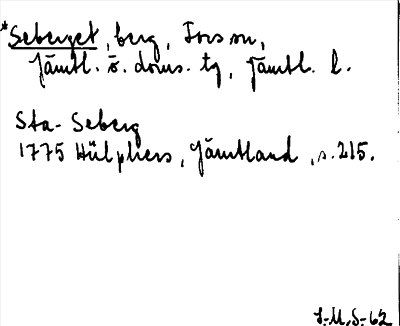 *Seberget, berg, Fors sn,
Jämtl. ö. doms. tg, Jämtl. l.
Sta- Seberg
1775 Hülphers, Jämtland, s. 215.
I.-M.S-62